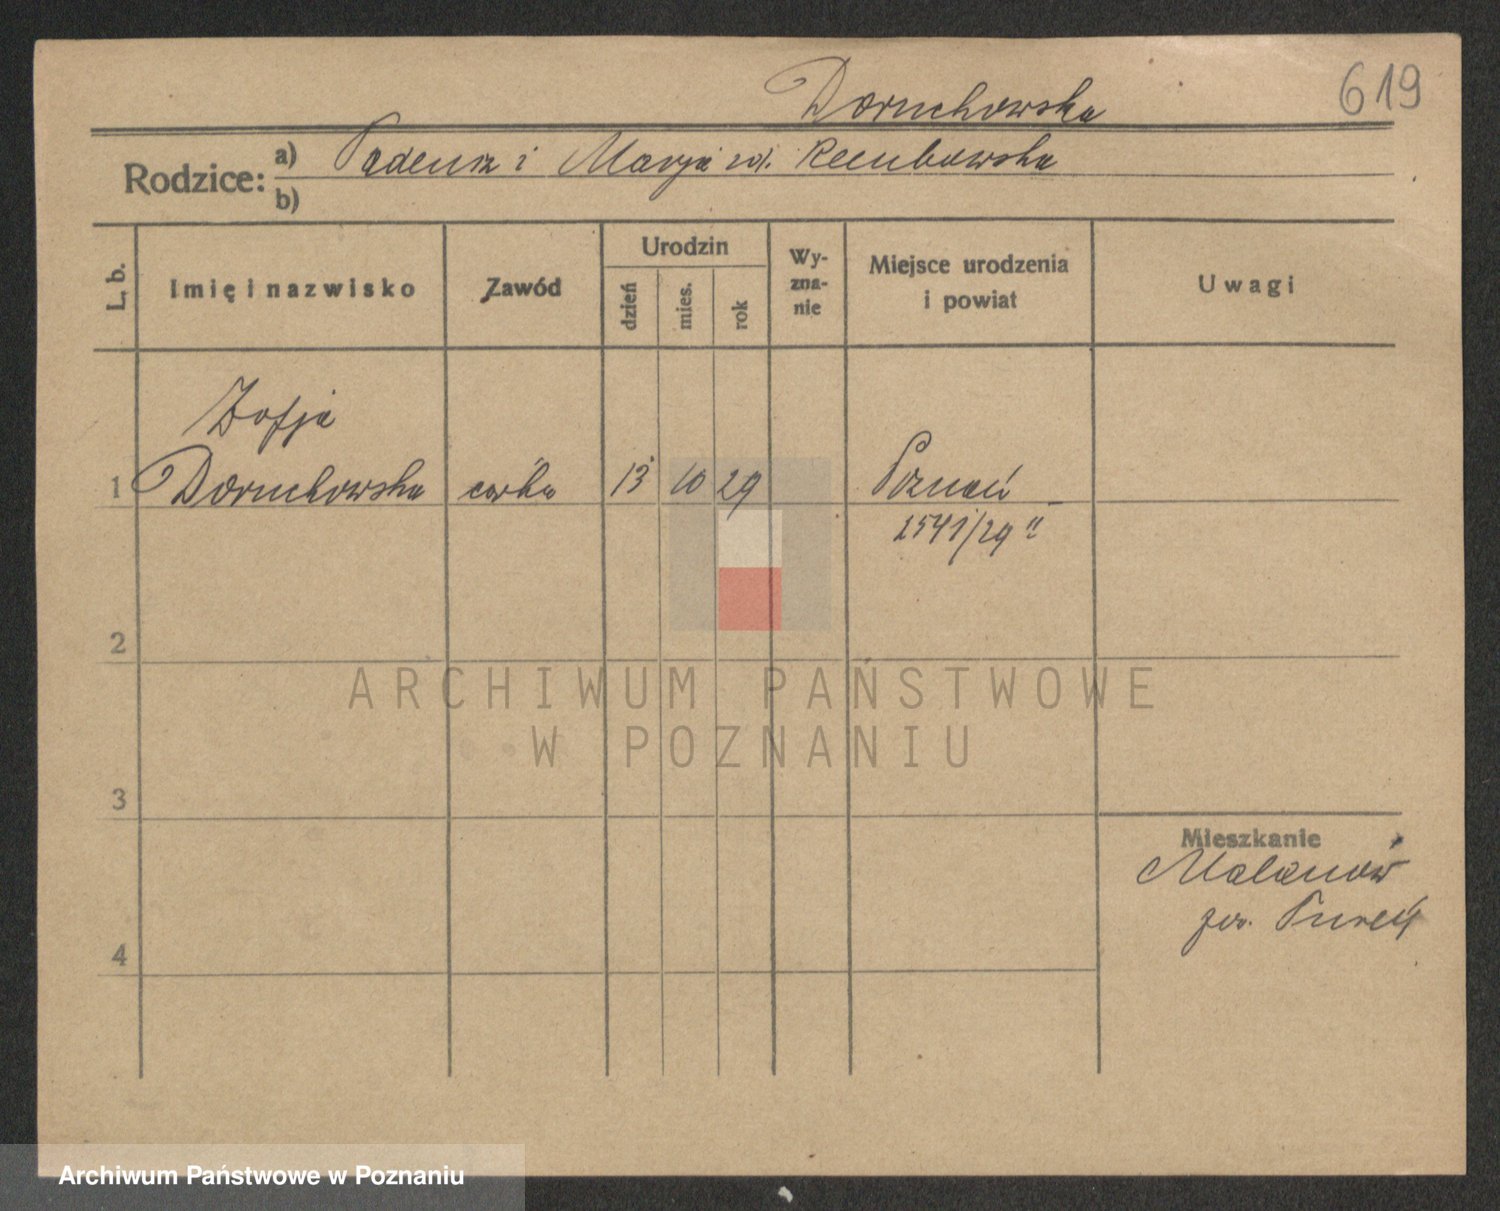 619
Doruchowska
Rodzice: a) Tadeusz i Marja zd. Rembowska
b)
L. b. Imię i nazwisko Zawód Urodzin dzień mies. rok Wy-zna-nie Miejsce urodzenia i powiat Uwagi
Zofja
1 Doruchowska córka 13 10 29 Poznań
2541/29 II
2
3
Mieszkanie
Malanów
pow. Turek
4
ARCHIWUM PAŃSTWOWE
W POZNANIU
Archiwum Państwowe w Poznaniu